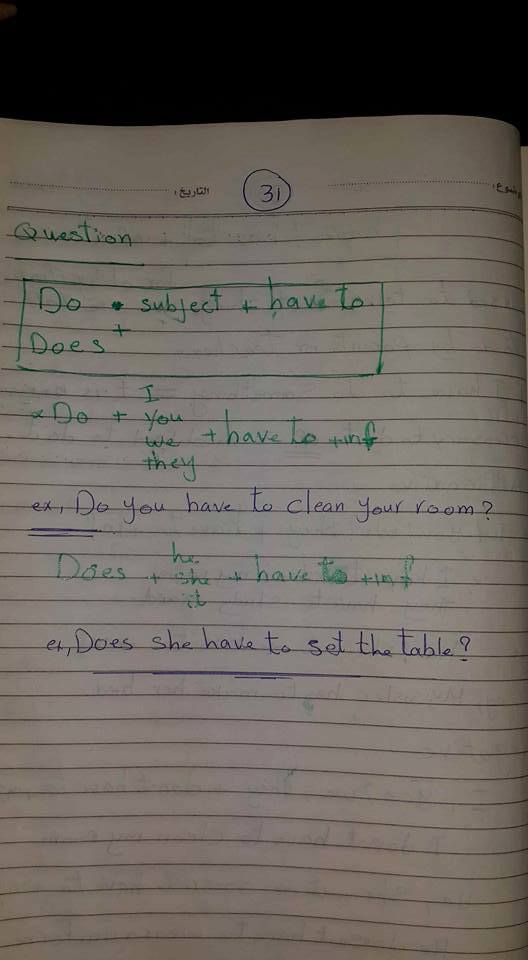 التاريخ:
31
Question
Do + subject + have to
Does +
Do + I you we they + have to + inf
ex, Do you have to clean your room?
Does + he she it + have to + inf
ex, Does she have to set the table?